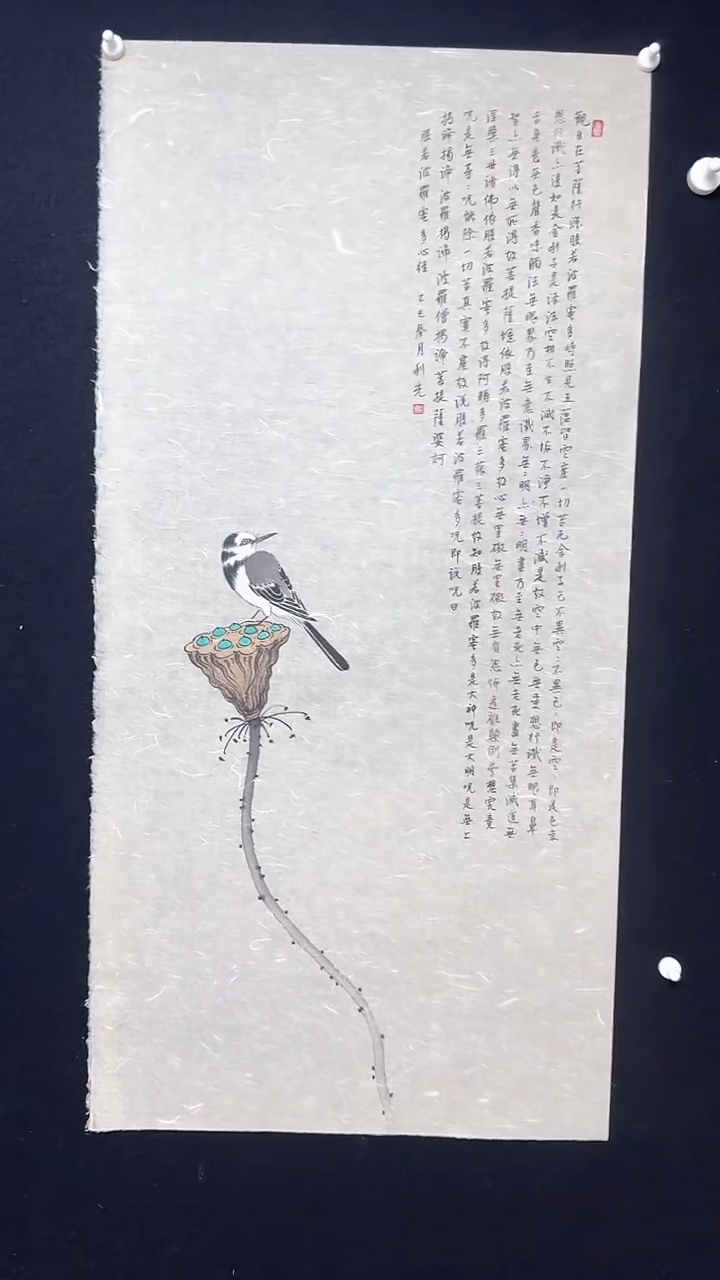 觀自在菩薩行深般若波羅蜜多時照見五蘊皆空度一切苦厄舍利子色不異空〻不異色〻即是空〻即是色受
想行識亦復如是舍利子是諸法空相不生不滅不垢不淨不增不減是故空中無色無受想行識無眼耳鼻
舌身意無色聲香味觸法無眼界乃至無意識界無〻明亦無〻明盡乃至無老死亦無老死盡無苦集滅道無
智亦無得以無所得故菩提薩埵依般若波羅蜜多故心無罣礙無罣礙故無有恐怖遠離顛倒夢想究竟
涅槃三世諸佛依般若波羅蜜多故得阿耨多羅三藐三菩提故知般若波羅蜜多是大神咒是大明咒是無上
咒是無等〻咒能除一切苦真實不虛故說般若波羅蜜多咒即說咒曰
揭諦揭諦 波羅揭諦 波羅僧揭諦 菩提薩婆訶
般若波羅蜜多心經 乙巳月利